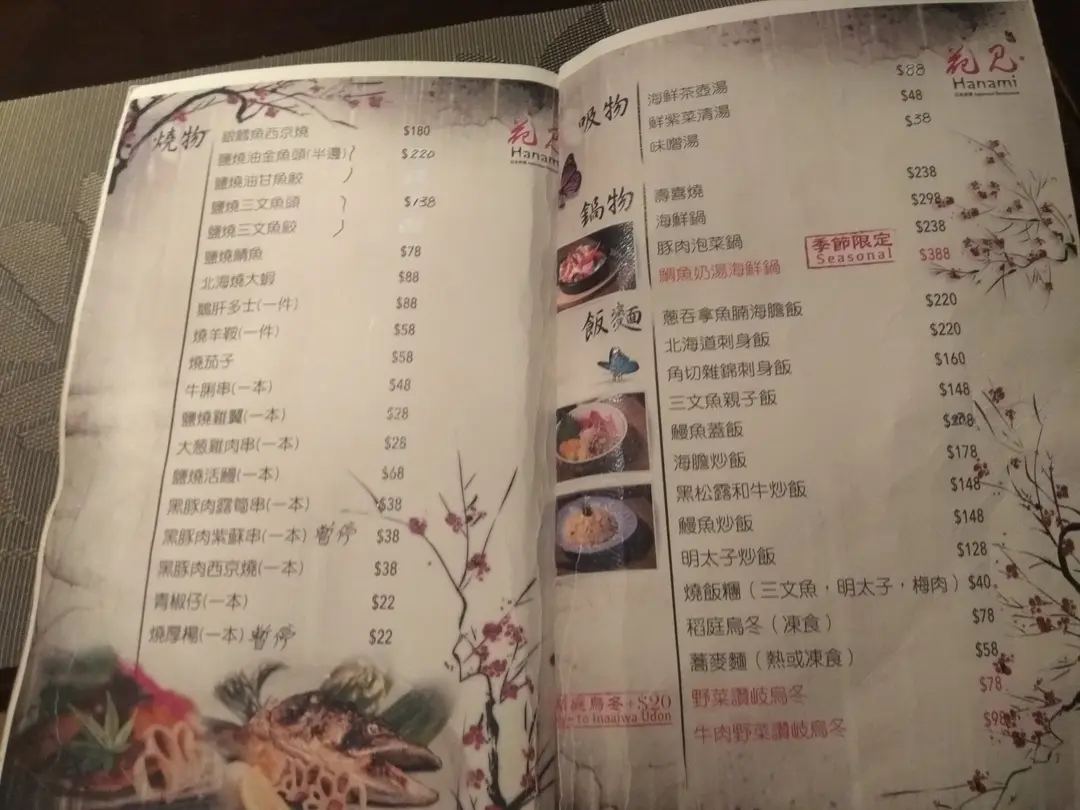 燒物
銀鱈魚西京燒 $180
鹽燒油金魚頭(半邊) $220
鹽燒油甘魚鮫
鹽燒三文魚頭 $138
鹽燒三文魚鮫
鹽燒鯖魚 $78
北海燒大蝦 $88
鵝肝多士(一件) $88
燒羊鞍(一件) $58
燒茄子 $58
牛脷串(一本) $48
鹽燒雞翼(一本) $28
大葱雞肉串(一本) $28
鹽燒活鰻(一本) $68
黑豚肉露筍串(一本) $38
黑豚肉紫蘇串(一本) 暫停 $38
黑豚肉西京燒(一本) $38
青椒仔(一本) $22
燒厚揚(一本) 暫停 $22
花見
Hanami
花見
Hanami
吸物
海鮮茶壺湯 $88
鮮紫菜清湯 $48
味噌湯 $38
鍋物
壽喜燒 $238
海鮮鍋 $298
豚肉泡菜鍋 $238
鯛魚奶湯海鮮鍋 $388
季節限定
Seasonal
飯麵
蔥吞拿魚腩海膽飯 $220
北海道刺身飯 $220
角切雜錦刺身飯 $160
三文魚親子飯 $148
鰻魚蓋飯
海膽炒飯 $178
黑松露和牛炒飯 $148
鰻魚炒飯 $148
明太子炒飯 $128
燒飯糰(三文魚，明太子，梅肉) $40
稻庭烏冬(凍食) $78
蕎麥麵(熱或凍食) $58
野菜讚岐烏冬 $78
牛肉野菜讚岐烏冬 $98
烏冬+$20
to Inaniwa Udon